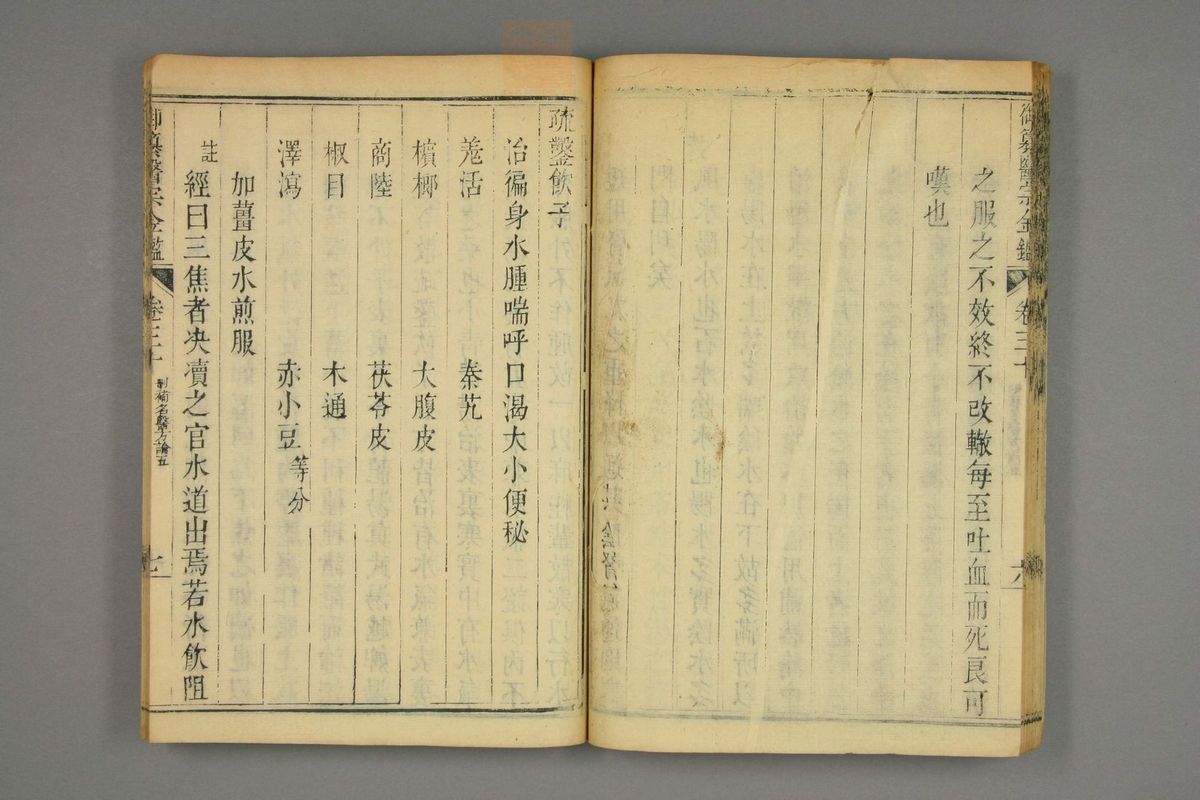 御纂醫宗金鑑
卷三十
六
之服之不效終不改轍每至吐血而死良可
嘆也
疏鑿飲子
治徧身水腫喘呼口渴大小便秘
羌活 秦艽
檳榔 大腹皮
商陸 茯苓皮
椒目 木通
澤瀉 赤小豆等分
加薑皮水煎服
註
經曰三焦者決瀆之官水道出焉若水飲阻
御纂醫宗金鑑
卷三十
刪補名醫方論五
七